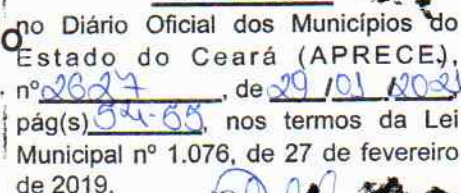 no Diário Oficial dos Municípios do
Estado do Ceará (APRECE),
nº 2627, de 29 / 01 / 2021
pág(s) 54-55, nos termos da Lei
Municipal nº 1.076, de 27 de fevereiro
de 2019.